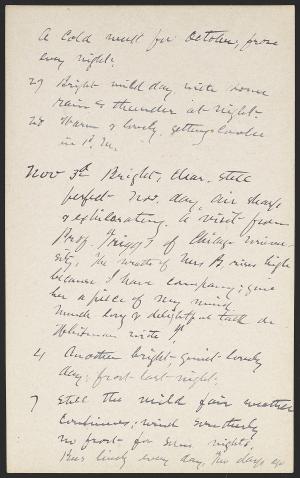 A cold week for October; froze
every night.
27 Bright mild day with some
rain & thunder at night.
28 Warm & lovely, getting cooler
in P.M.
Nov 3d Bright, clear, still
perfect Nov. day, air sharp
& exhilarating. A visit from
Prof. Triggs of Chicago univer-
sity. The wrath of Mrs B. rises high
because I have company; give
her a piece of my mind.
Much long & delightful talk on
Whitman with
4 Another bright, quiet lovely
day; frost last night.
7 Still the mild fair weather
continues; wind southerly
no frost for some nights,
Bees lively every day, Two days ago